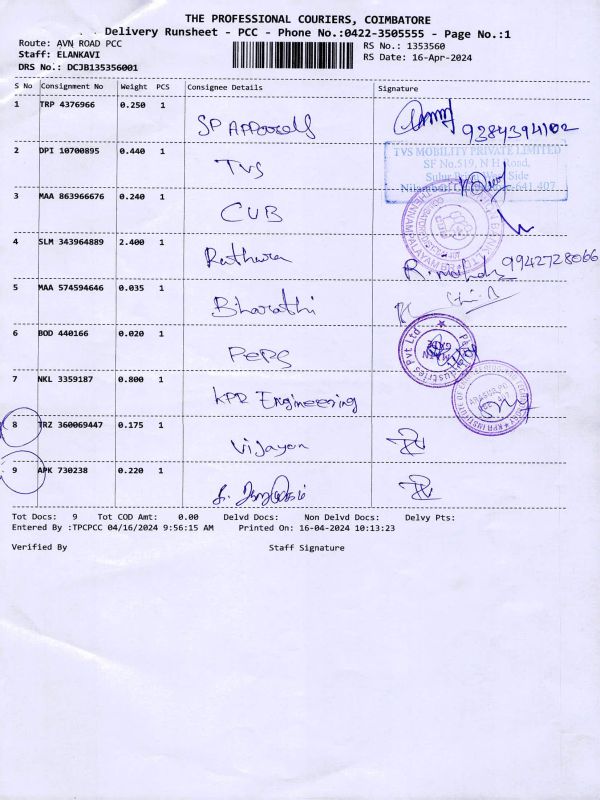 THE PROFESSIONAL COURIERS, COIMBATORE
Delivery Runsheet - PCC - Phone No.:0422-3505555 - Page No.:1
Route: AVN ROAD PCC RS No.: 1353560
Staff: ELANKAVI RS Date: 16-Apr-2024
DRS No.: DCJB135356001
S No Consignment No Weight PCS Consignee Details Signature
1 TRP 4376966 0.250 1 SP Apparels 9384394102
2 DPI 10700895 0.440 1 TVS
TVS MOBILITY PRIVATE LIMITED
SF No.519, N H Road,
Side
641 407
3 MAA 863966676 0.240 1 CUB
4 SLM 343964889 2.400 1 9942728066
5 MAA 574594646 0.035 1 Bharathi
6 BOD 440166 0.020 1
7 NKL 3359187 0.800 1 KPR Engineering
8 TRZ 360069447 0.175 1 Vijayan
9 APK 730238 0.220 1
Tot Docs: 9 Tot COD Amt: 0.00 Delvd Docs: Non Delvd Docs: Delvy Pts:
Entered By :TPCPCC 04/16/2024 9:56:15 AM Printed On: 16-04-2024 10:13:23
Verified By Staff Signature